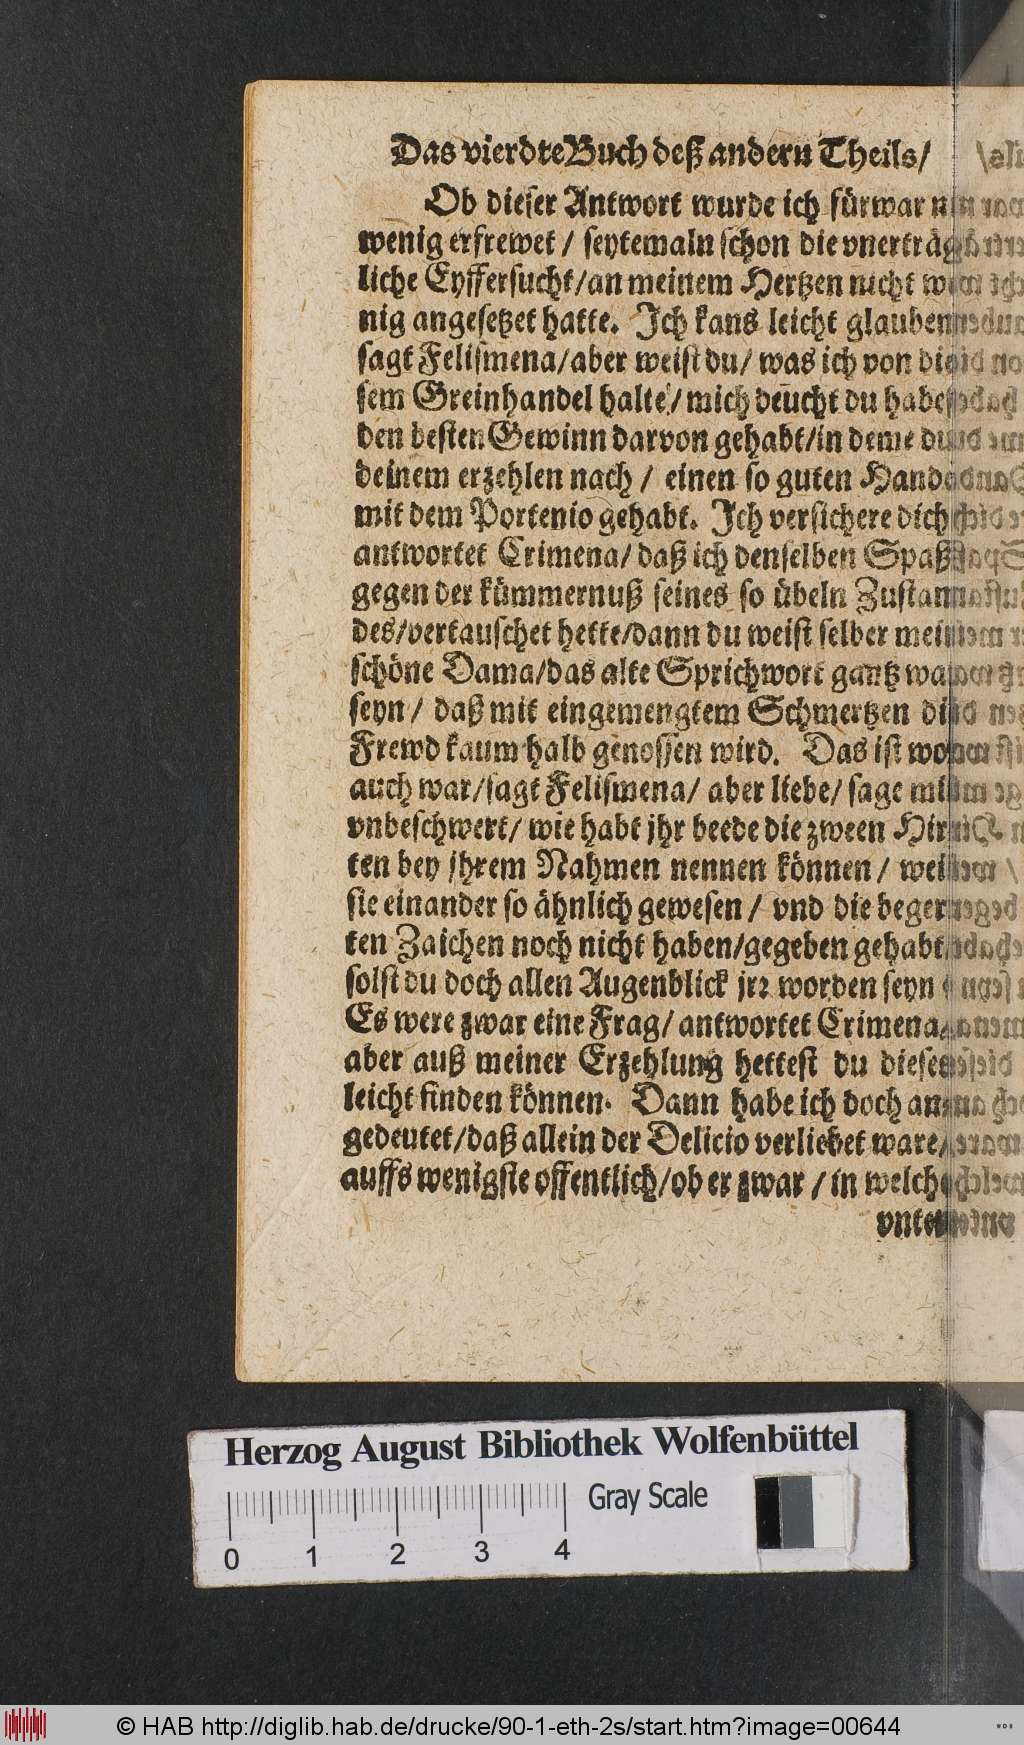 Das vierdte Buch deß andern Theils/
Ob dieser Antwort wurde ich fürwar nit
wenig erfrewet / seytemaln schon die vnerträg
liche Eyffersucht/an meinem Hertzen nicht we
nig angesetzet hatte. Ich kans leicht glauben
sagt Felismena/aber weist du/ was ich von die
sem Greinhandel halte/ mich deucht du habest
den besten Gewinn darvon gehabt/in deme du
deinem erzehlen nach / einen so guten
mit dem Portenio gehabt. Ich versichere dich
antwortet Crimena/ daß ich denselben Spaß
gegen der kümmernuß seines so übeln Zustan
des/vertauschet hette/dann du weist selber mein
schöne Dama/das alte Sprichwort gantz
seyn/ daß mit eingemengtem Schmertzen die
Frewd kaum halb genossen wird. Das ist wol
auch war/sagt Felismena/ aber liebe/ sage mir
vnbeschwert/ wie habt jhr beede die zween Hir
ten bey jhrem Nahmen nennen können/ weil
sie einander so ähnlich gewesen/ vnd die beger
ten Zaichen noch nicht haben/gegeben gehabt
solst du doch allen Augenblick jrr worden seyn
Es were zwar eine Frag/ antwortet Crimena
aber auß meiner Erzehlung hettest du dieses
leicht finden können. Dann habe ich doch an
gedeutet/daß allein der Delicio verliebet ware/
auffs wenigste offentlich/ob er zwar / in welch
vnter
Herzog August Bibliothek Wolfenbüttel
Gray Scale
0 1 2 3 4
© HAB http://diglib.hab.de/drucke/90-1-eth-2s/start.htm?image=00644